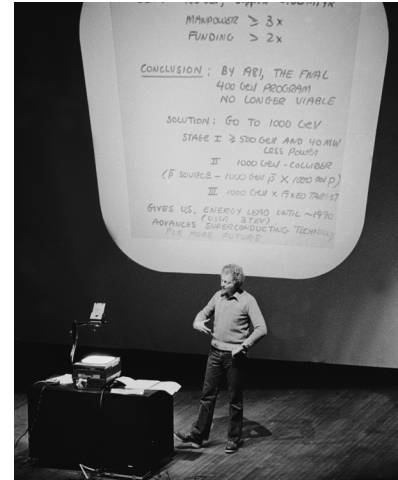 MANPOWER ≥ 3x
FUNDING > 2x
CONCLUSION : BY 1981, THE FNAL
400 GeV PROGRAM
NO LONGER VIABLE
SOLUTION : GO TO 1000 GeV
STAGE I ≥ 500 GeV AND 40 MW
LESS POWER
II 1000 GeV - COLLIDER
(P̄ SOURCE - 1000 GeV P̄ X 1000 GeV P)
III 1000 GeV X FIXED TARGET
GIVES U.S. ENERGY LEAD UNTIL ~1990
ADVANCES SUPERCONDUCTING TECHNOLOGY
FOR MORE FUTURE